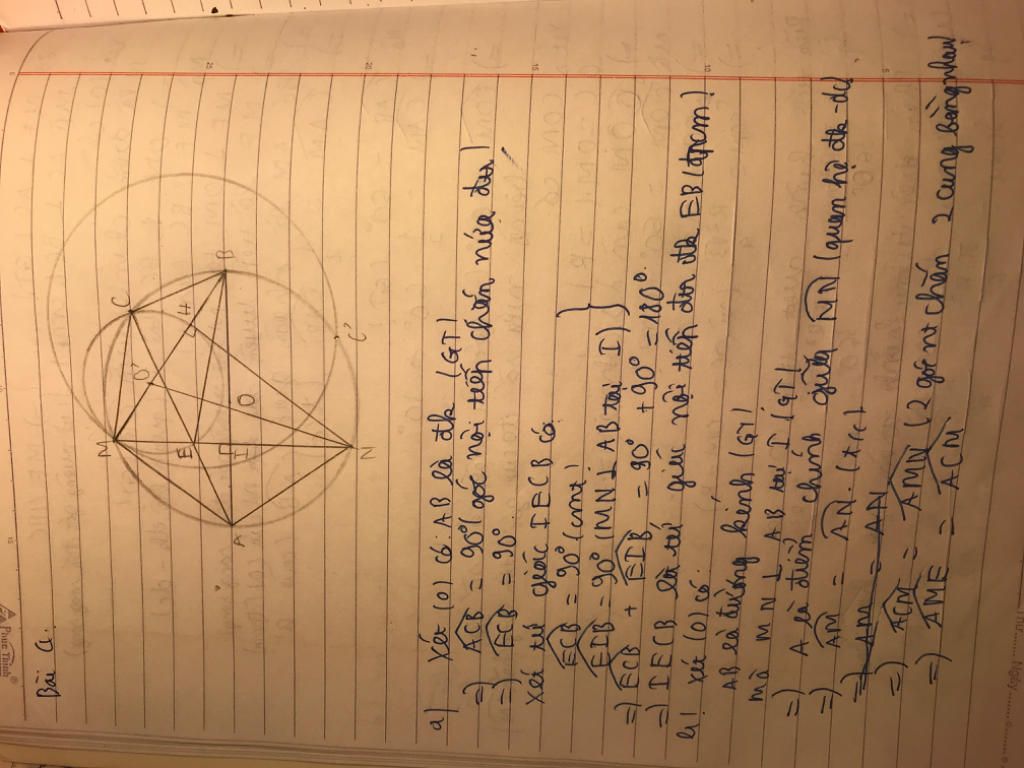 Bài 4:
M
C
O'
H
E
B
A
I
O
N
C'
a) Xét (O) có: AB là đk (GT)
=> ACB = 90° (góc nội tiếp chắn nửa đtr)
=> ECB = 90°.
Xét tứ giác IECB có
ECB = 90° (cmt)
EIB = 90° (MN ⊥ AB tại I) }
=> ECB + EIB = 90° + 90° = 180°.
=> IECB là tứ giác nội tiếp đtr đk EB (đpcm)
b) Xét (O) có:
AB là đường kính (GT)
mà MN ⊥ AB tại I (GT)
=> A là điểm chính giữa NN (quan hệ đk-dc)
=> AM = AN (t/c)
=> AM = AN
=> ACN = AMN (2 góc nt chắn 2 cung bằng nhau)
=> AME = ACM
Phúc Thịnh
Ngày